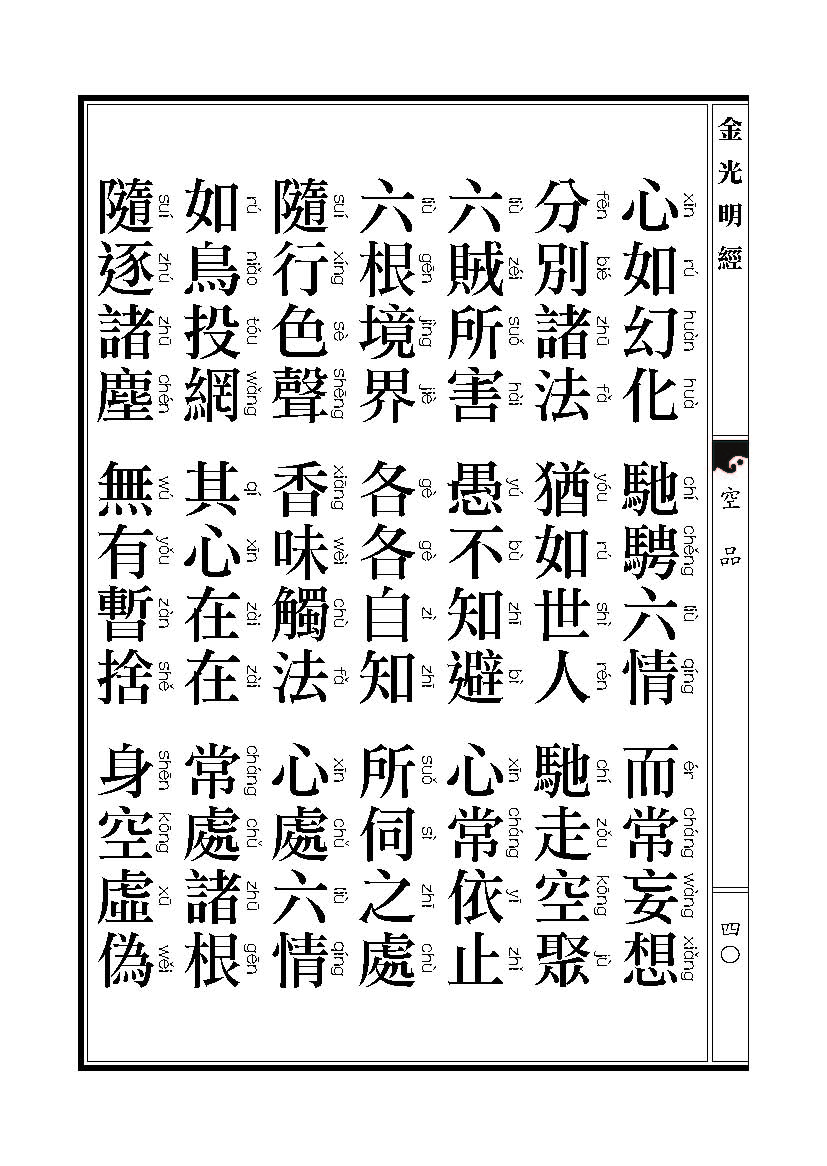 金光明經
空品
四〇
心如幻化 馳騁六情 而常妄想
xīn rú huàn huà chí chěng liù qíng ér cháng wàng xiǎng
分別諸法 猶如世人 馳走空聚
fēn bié zhū fǎ yóu rú shì rén chí zǒu kōng jù
六賊所害 愚不知避 心常依止
liù zéi suǒ hài yú bù zhī bì xīn cháng yī zhǐ
六根境界 各各自知 所伺之處
liù gēn jìng jiè gè gè zì zhī suǒ sì zhī chù
隨行色聲 香味觸法 心處六情
suí xíng sè shēng xiāng wèi chù fǎ xīn chǔ liù qíng
如鳥投網 其心在在 常處諸根
rú niǎo tóu wǎng qí xīn zài zài cháng chǔ zhū gēn
隨逐諸塵 無有暫捨 身空虛偽
suí zhú zhū chén wú yǒu zàn shě shēn kōng xū wěi